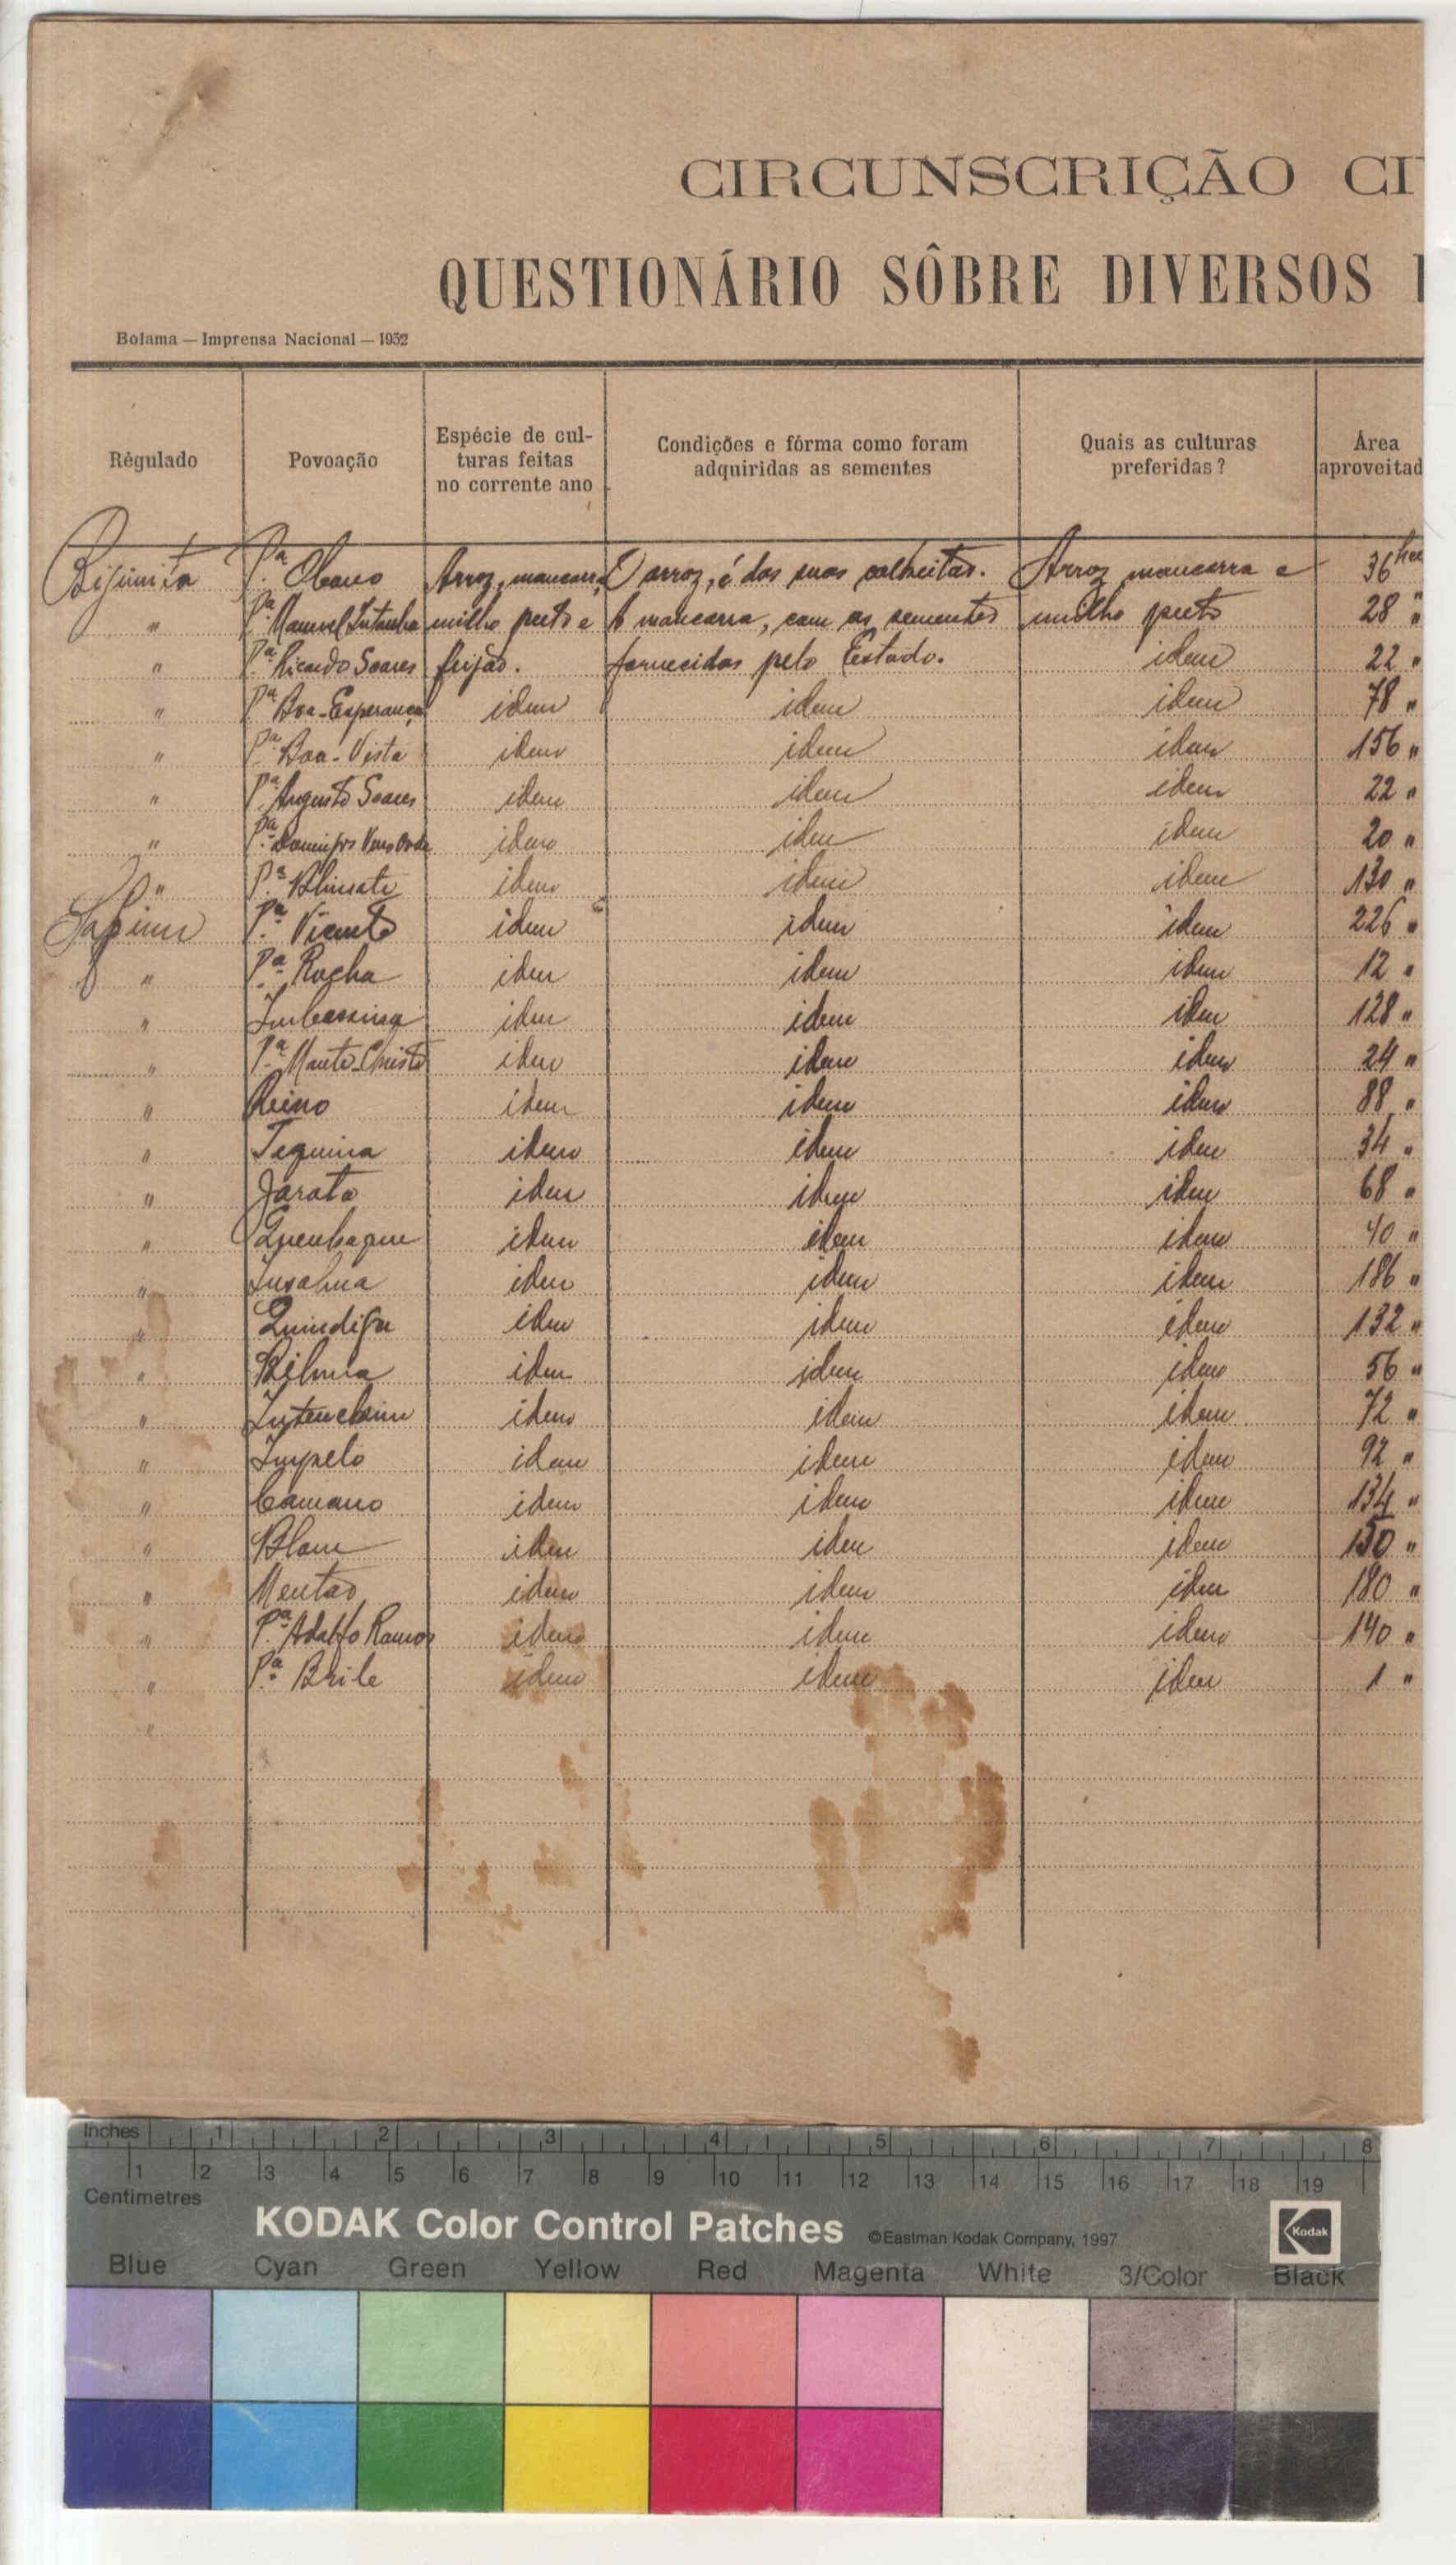 CIRCUNSCRIÇÃO CI
QUESTIONÁRIO SÔBRE DIVERSOS
Bolama — Imprensa Nacional — 1932
Régulado Povoação Espécie de cul- Condições e fórma como foram Quais as culturas Área
turas feitas adquiridas as sementes preferidas? aproveitad
no corrente ano
Bijimita P.ª Obano Arroz, mancarra, O arroz, é das suas colheitas. Arroz mancarra e 36 hec
" P.ª Manuel milho preto e A mancarra, com as sementes milho preto 28 "
" P.ª Ricardo Soares feijão. fornecidas pelo Estado. idem 22 "
" P.ª Boa-Esperança idem idem idem 78 "
" P.ª Boa-Vista idem idem idem 156 "
" P.ª Augusto Soares idem idem idem 22 "
" P.ª Domingos idem idem idem 20 "
" P.ª idem idem idem 130 "
Safim P.ª Vicente idem idem idem 226 "
" P.ª Rocha idem idem idem 12 "
" idem idem idem 128 "
" P.ª Monte-Christo idem idem idem 24 "
" Reino idem idem idem 88 "
" Tequina idem idem idem 34 "
" Jarata idem idem idem 68 "
" idem idem idem 40 "
" idem idem idem 186 "
" idem idem idem 132 "
" idem idem idem 56 "
" idem idem idem 72 "
" Impelo idem idem idem 92 "
" Camano idem idem idem 134 "
" Blom idem idem idem "
" Mentao idem idem idem 180 "
" P.ª Adolfo Ramos idem idem idem 140 "
" P.ª Brile idem idem idem 1 "
"
Inches 1 2 3 4 5 6 7 8
1 2 3 4 5 6 7 8 9 10 11 12 13 14 15 16 17 18 19
Centimetres
KODAK Color Control Patches ©Eastman Kodak Company, 1997 Kodak
Blue Cyan Green Yellow Red Magenta White 3/Color Black